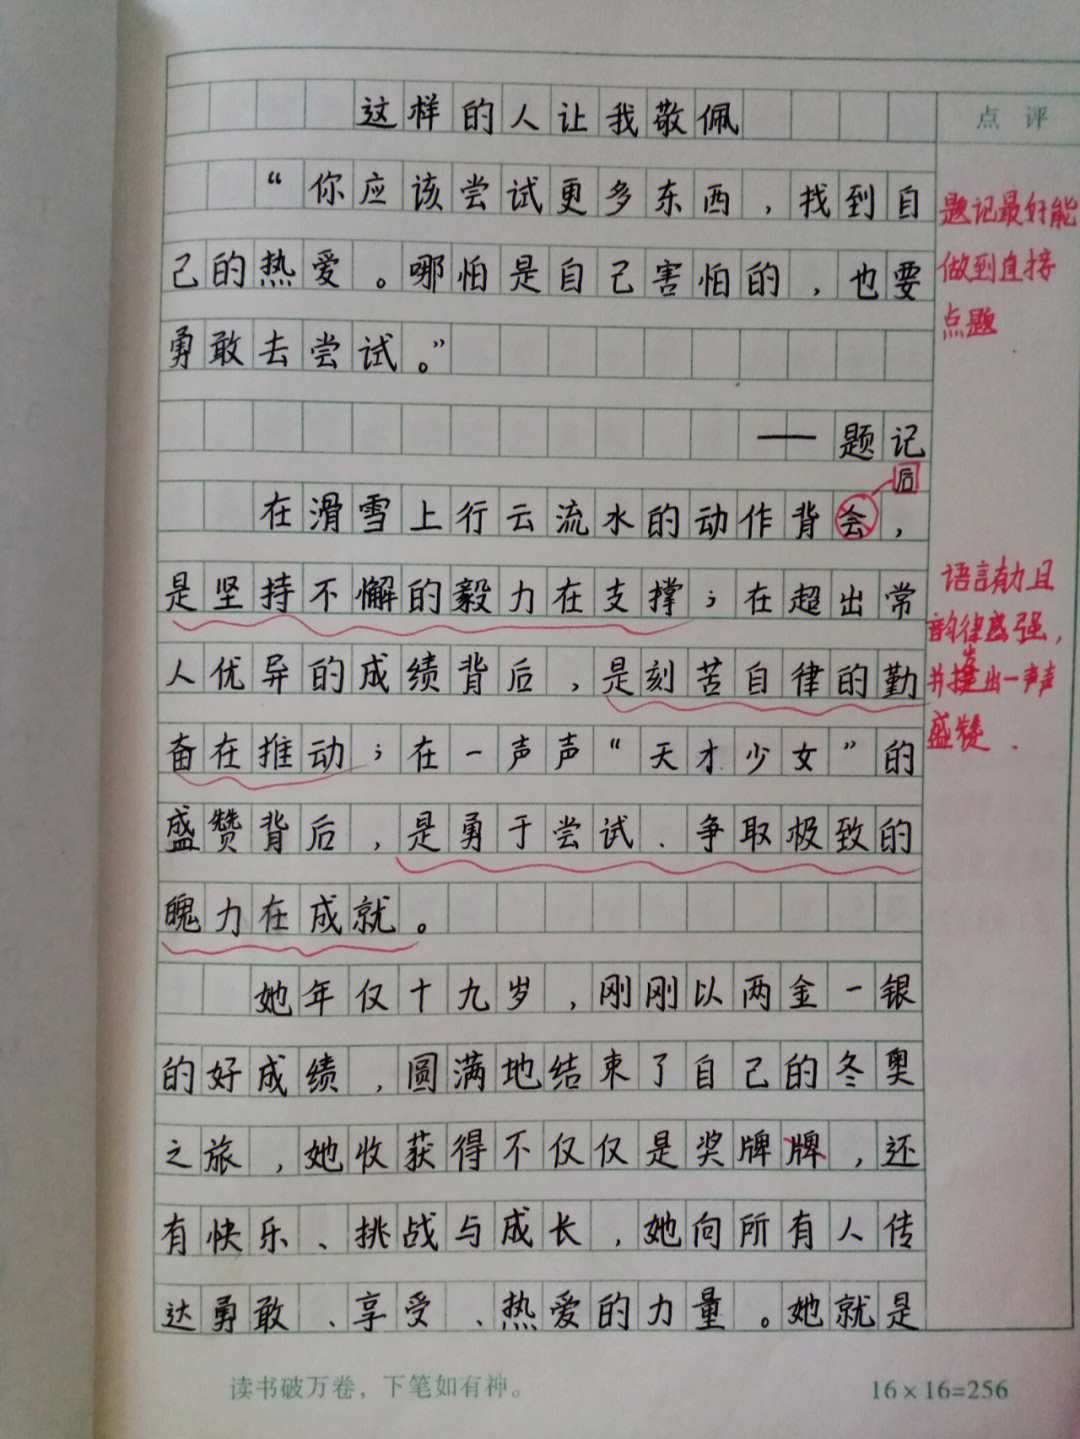 这样的人让我敬佩
点评
“你应该尝试更多东西，找到自
己的热爱。哪怕是自己害怕的，也要
勇敢去尝试。”
题记最好能
做到直接
点题
——题记
后
在滑雪上行云流水的动作背会，
是坚持不懈的毅力在支撑；在超出常
人优异的成绩背后，是刻苦自律的勤
奋在推动；在一声声“天才少女”的
盛赞背后，是勇于尝试、争取极致的
魄力在成就。
语言有力且
韵律感强，
并出一声声
盛赞.
她年仅十九岁，刚刚以两金一银
的好成绩，圆满地结束了自己的冬奥
之旅，她收获得不仅仅是奖牌牌，还
有快乐、挑战与成长，她向所有人传
达勇敢、享受、热爱的力量。她就是
读书破万卷，下笔如有神。
16×16=256